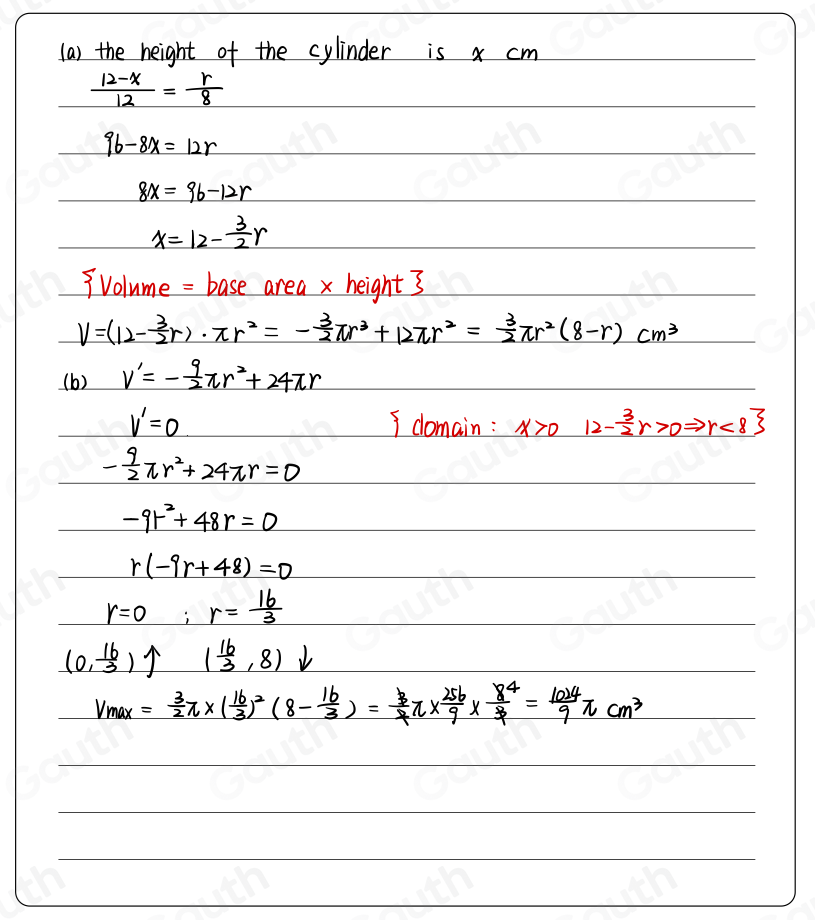 (a) the height of the cylinder is x cm
(12-x)/12 = r/8
96-8x = 12r
8x = 96-12r
x = 12 - 3/2 r
{Volume = base area × height}
V = (12 - 3/2 r) · πr² = -3/2 πr³ + 12πr² = 3/2 πr² (8-r) cm³
(b) V' = -9/2 πr² + 24πr
V' = 0 { domain : x>0 12 - 3/2 r > 0 ⇒ r<8 }
-9/2 πr² + 24πr = 0
-9r² + 48r = 0
r(-9r+48) = 0
r=0 ; r = 16/3
(0, 16/3) ↑ (16/3, 8) ↓
Vmax = 3/2 π × (16/3)² (8 - 16/3) = 3/2 π × 256/9 × 8 4/3 = 1024/9 π cm³
Gauth